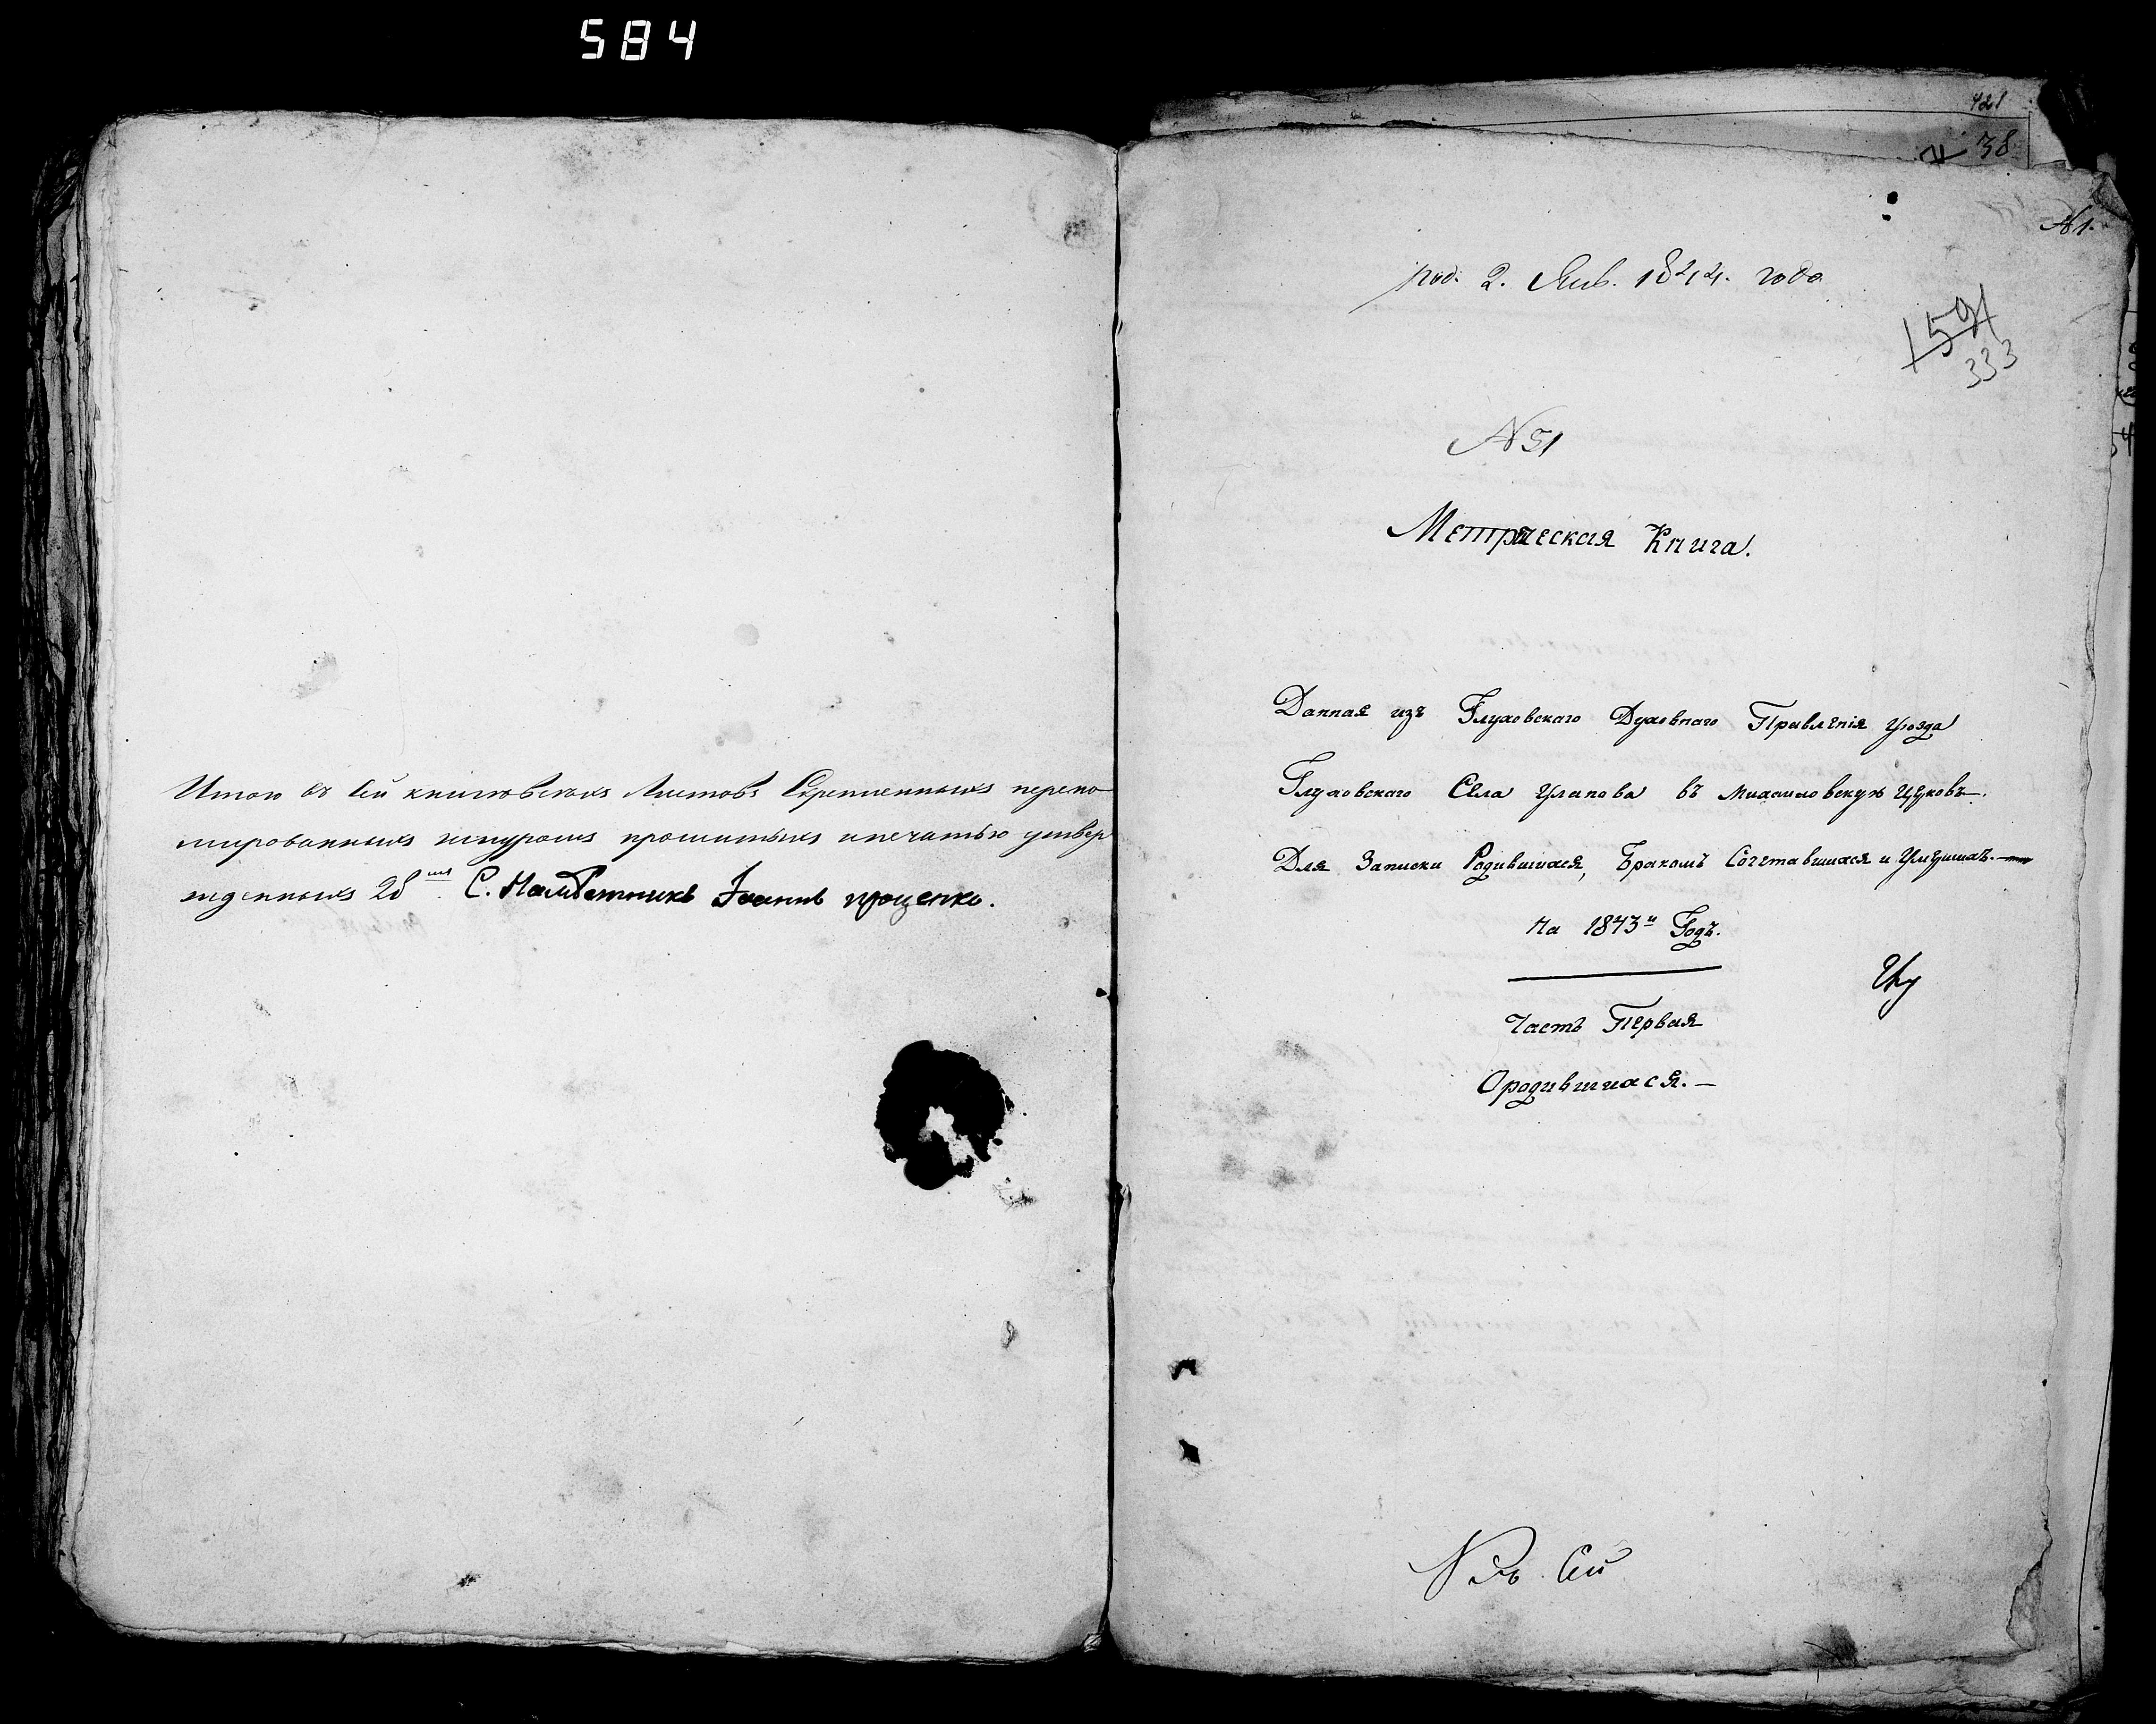 584
Итого въ сей книгѣ всѣхъ листовъ скрепленныхъ перено
мированныхъ шнуромъ прошитыхъ и печатью утвер
жденныхъ 28 С. Намѣстникъ Іоаннъ Проценко.
421
38
№ 1.
2. Янв. 1844. года
1591
333
№ 51
Метрическая Книга.
Данная изъ Глуховскаго Духовнаго Правленія уѣзда
Глуховскаго Села Уланова въ Михайловскую Церковь.
Для Записки Родившихся, Бракомъ Сочетавшихся и Умершихъ.
На 1843й Годъ.
Часть Первая
О родившихся.
Сей